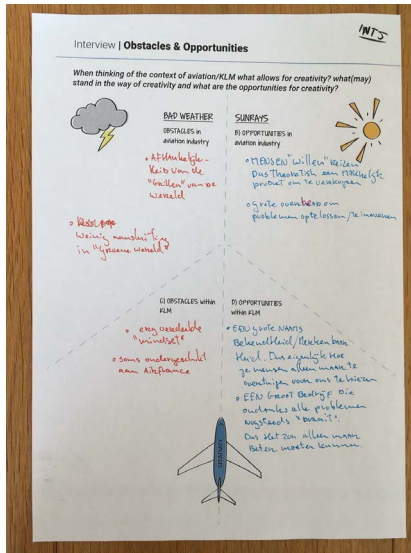 INT5
Interview | Obstacles & Opportunities
When thinking of the context of aviation/KLM what allows for creativity? what(may)
stand in the way of creativity and what are the opportunities for creativity?
BAD WEATHER
OBSTACLES in
aviation industry
• Afhankelijk-
heid van de
"Grillen" van de
wereld
• 
Weinig aansluiting
in "Groene wereld."
SUNRAYS
B) OPPORTUNITIES in
aviation industry
• MENSEN "willen" Reizen
Dus theoretisch een makkelijk
product om te verkopen
• grote overhead om
problemen op te lossen/te innoveren
C) OBSTACLES within
KLM
• erg verdeelde
"mindset"
• soms ondergeschikt
aan Airfrance
D) OPPORTUNITIES
within KLM
• EEN grote NAAMS
Bekendheid/Herkenbaar
Heid. Dus eigenlijk Hoef
je mensen alleen maar te
overtuigen voor ons te kiezen
• EEN GROOT Bedrijf Die
ondanks alle problemen
nogsteeds "Draait".
Dus Het zou alleen maar
Beter moeten kunnen.
CREATIVITY